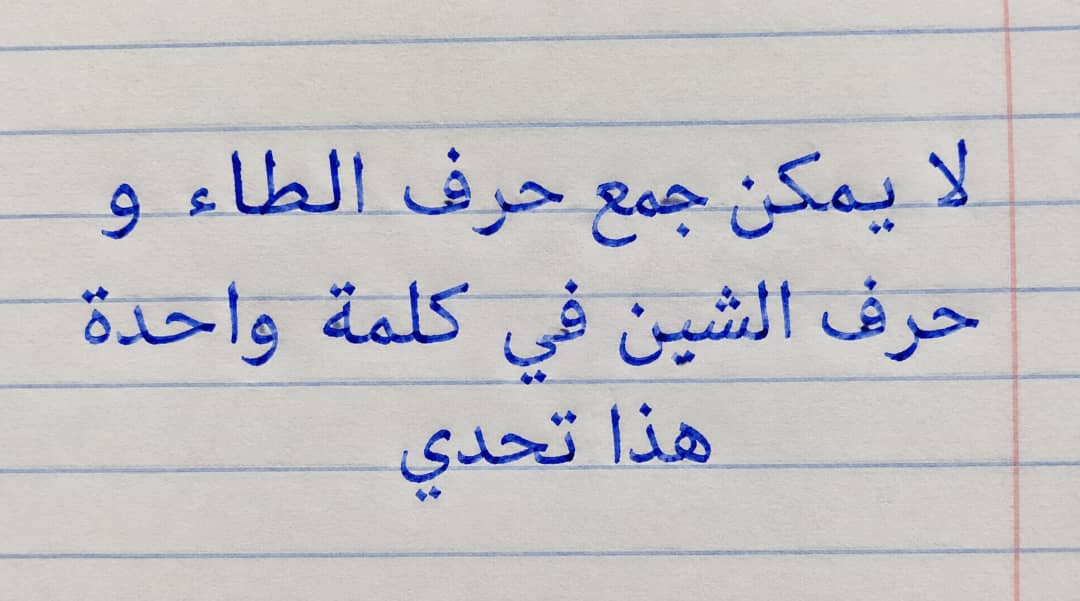 لا يمكن جمع حرف الطاء و
حرف الشين في كلمة واحدة
هذا تحدي